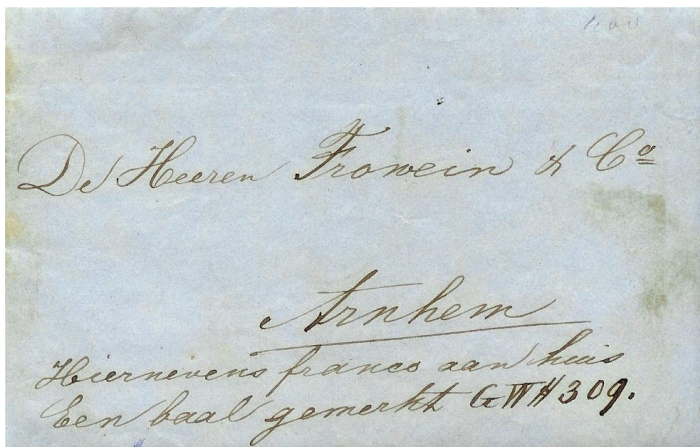 De Heeren Frowein & Co
Arnhem
Hiernevens franco aan huis
Een baal gemerkt GWH 309.